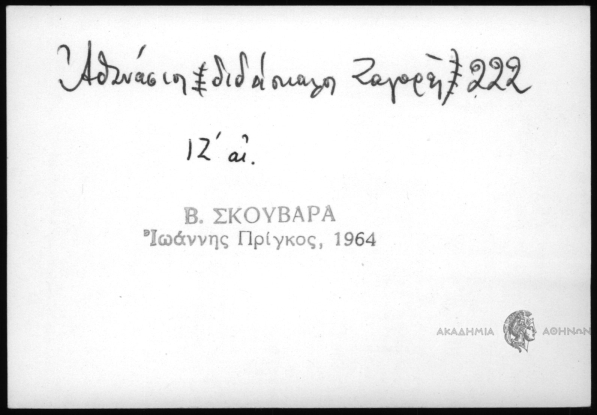 Ἀθανάσιος διδάσκαλος Ζαγορᾶς 222
ΙΖ΄ αἰ.
Β. ΣΚΟΥΒΑΡΑ
Ἰωάννης Πρίγκος, 1964
ΑΚΑΔΗΜΙΑ ΑΘΗΝΩΝ